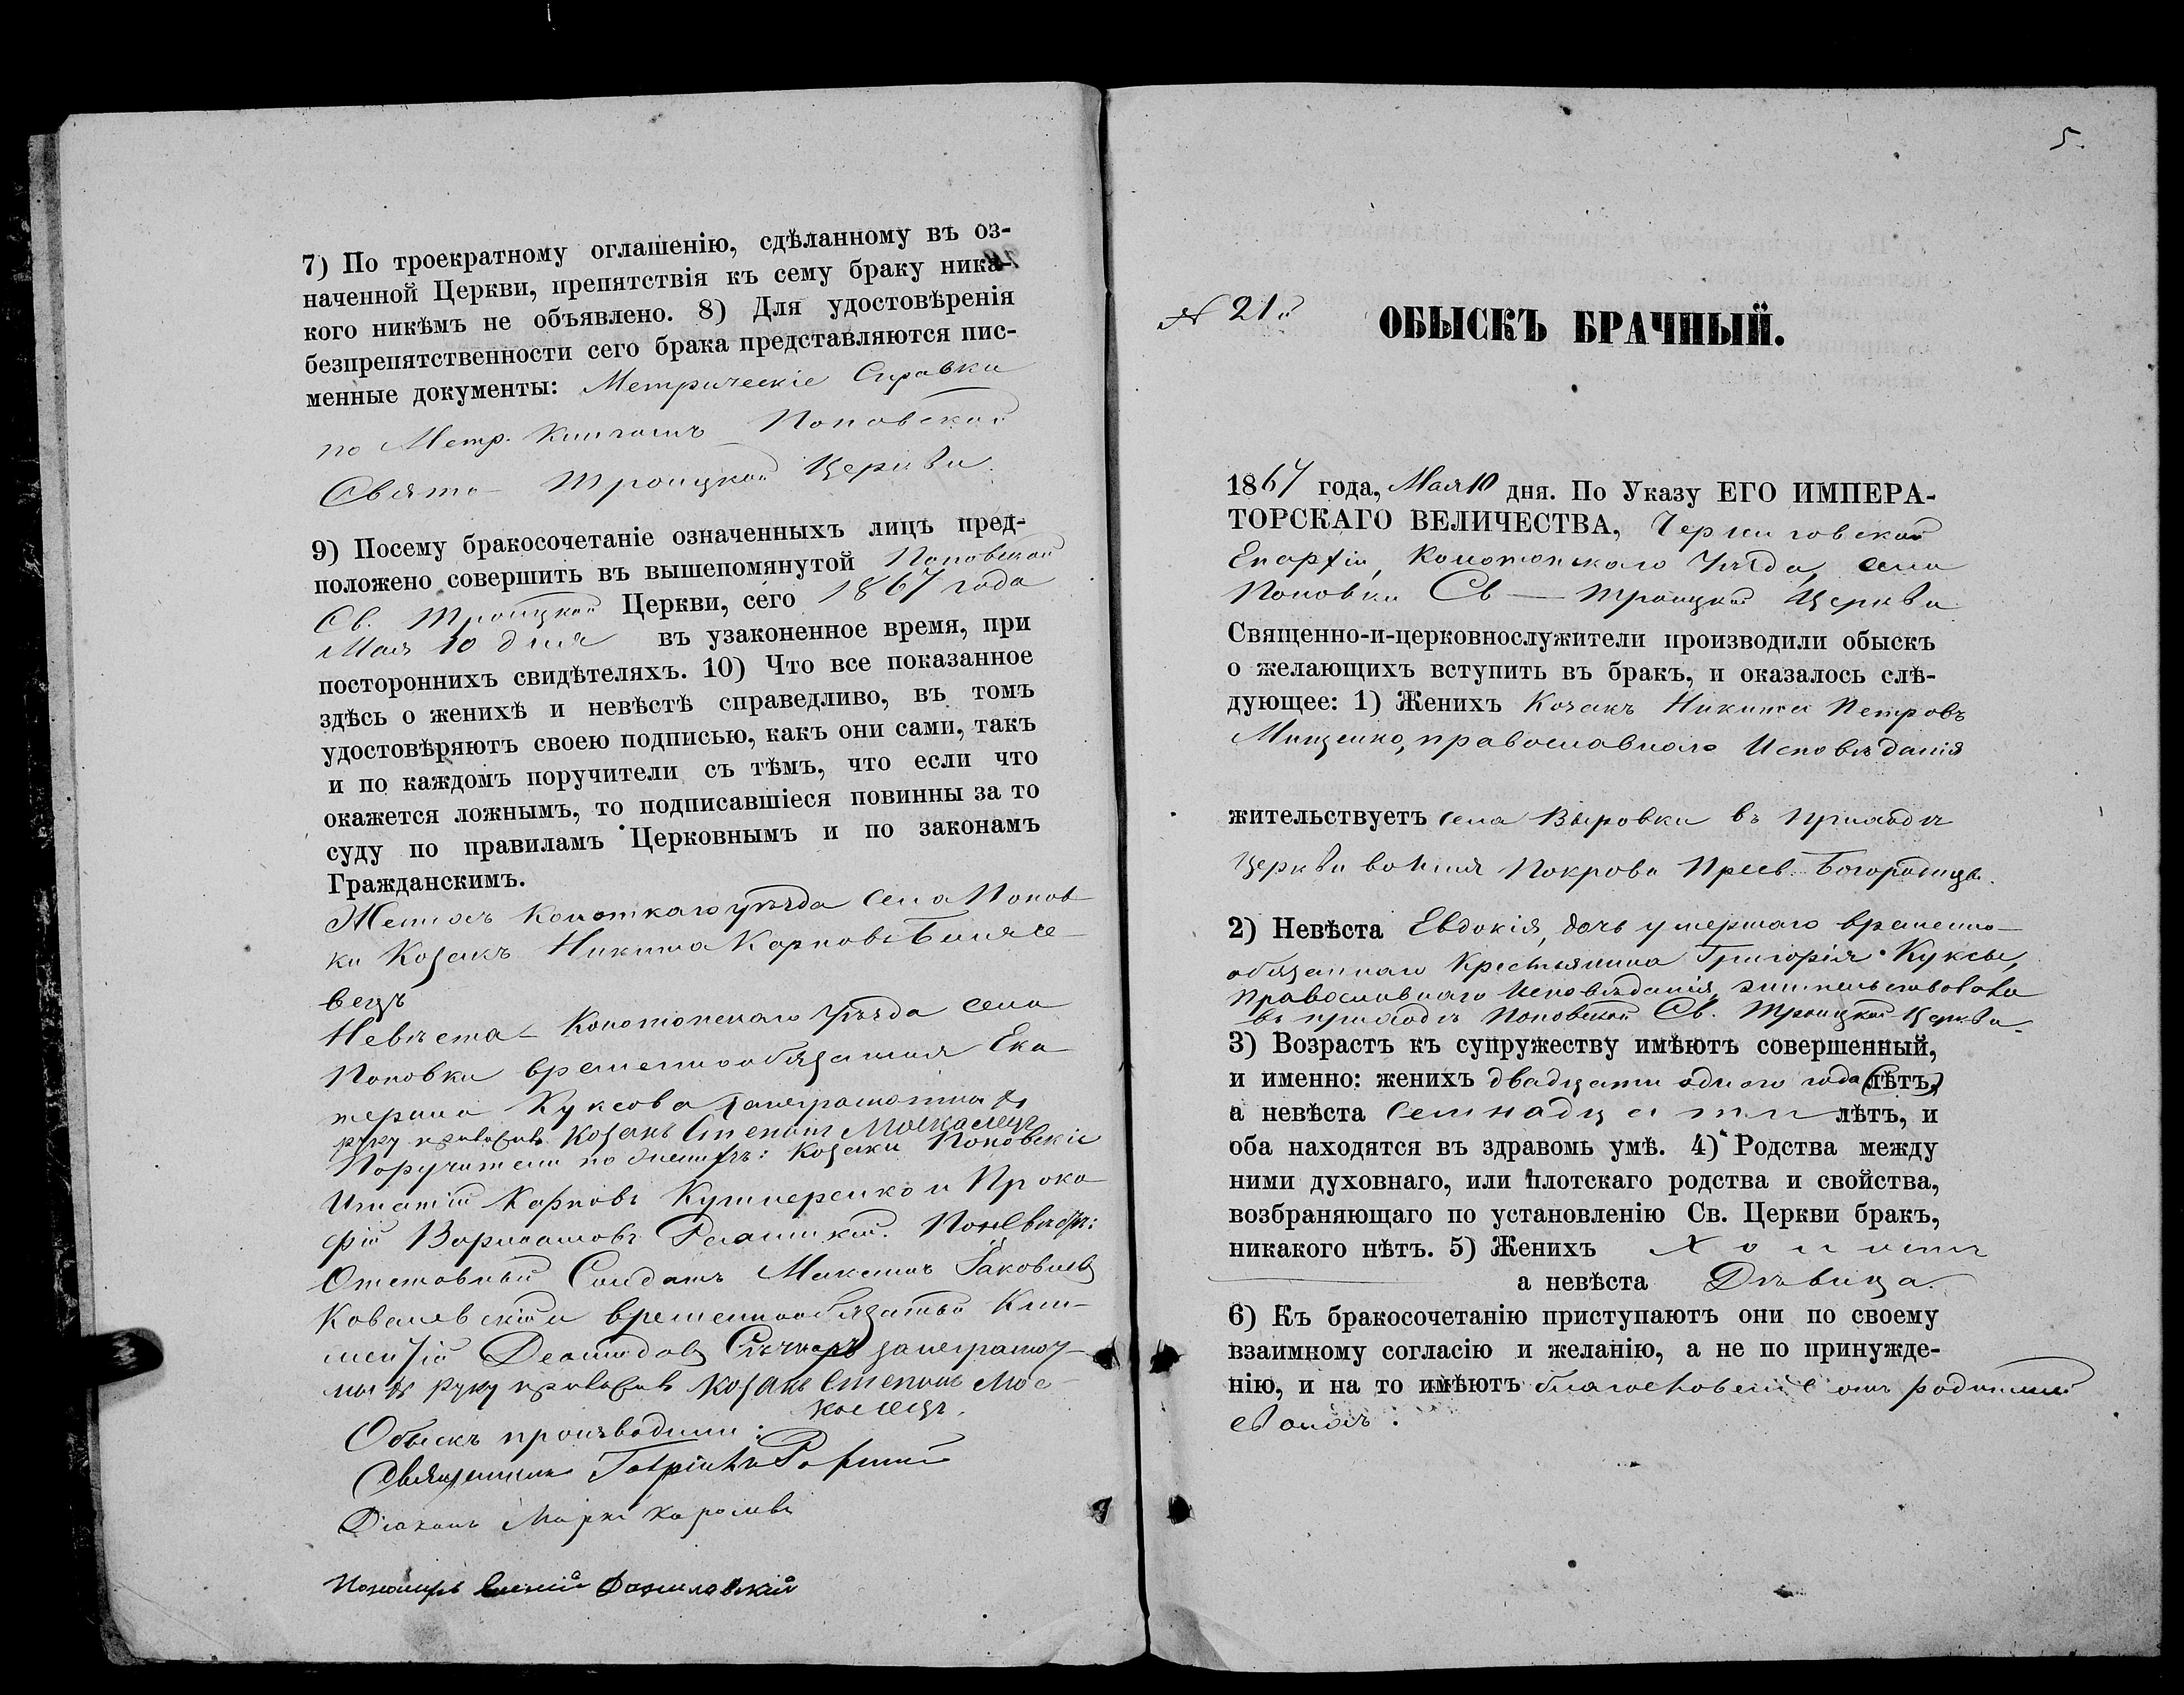 7) По троекратному оглашенію, сдѣланному въ оз-
наченной Церкви, препятствія къ сему браку ника-
кого никѣмъ не объявлено. 8) Для удостовѣренія
безпрепятственности сего брака представляются пис-
менные документы: Метрическіе Справки
по Метр. Книгамъ Поповской
Свято- Троицкой Церкви.
9) Посему бракосочетаніе означенныхъ лицъ пред-
положено совершить въ вышепомянутой Поповской
Св. Троицкой Церкви, сего 1867 года
Мая 10 дня въ узаконенное время, при
постороннихъ свидѣтеляхъ. 10) Что все показанное
здѣсь о женихѣ и невѣстѣ справедливо, въ томъ
удостовѣряютъ своею подписью, какъ они сами, такъ
и по каждомъ поручители съ тѣмъ, что если что
окажется ложнымъ, то подписавшіеся повинны за то
суду по правиламъ Церковнымъ и по законамъ
Гражданскимъ.
Женихъ уѣзда села Попов
ки Козакъ Никита Карповъ
вецъ
Невѣста - Конотопскаго уѣзда села
Поповки временнообязанная Ека
терина Куксова
руку Козакъ Степанъ
Поручители по Козаки Поповскіе
Игнатій Карповъ Кушнеренко и Проко
фій
Отставный Солдатъ Максимъ Яковлевъ
Ковалевскій и временнообязаный Кли-
ментій
руку Козакъ Степанъ Мос-
Обыскъ производили:
Священникъ
Діаконъ Марко
Пономарь
5.
N 21й
ОБЫСКЪ БРАЧНЫЙ.
1867 года, Мая 10 дня. По Указу ЕГО ИМПЕРА-
ТОРСКАГО ВЕЛИЧЕСТВА, Черниговской
Епархіи, Конотопскаго Уѣзда, села
Поповки Св — Троицкой Церкви
Священно-и-церковнослужители производили обыскъ
о желающихъ вступить въ бракъ, и оказалось слѣ-
дующее: 1) Женихъ Козакъ Никита Петровъ
Мищенко, православнаго Исповѣданія
жительствуетъ села Выровки въ приходѣ
Церкви во имя Покрова Пресв. Богородицы.
2) Невѣста Евдокія, дочь умершаго временно-
обязаннаго Крестьянина Григорія Куксы,
православнаго Исповѣданія, жительствовала
въ приходѣ Поповской Св. Троицкой Церкви.
3) Возрастъ къ супружеству имѣютъ совершенный,
и именно: женихъ двадцати одного года (лѣтъ,)
а невѣста семнадцати лѣтъ, и
оба находятся въ здравомъ умѣ. 4) Родства между
ними духовнаго, или плотскаго родства и свойства,
возбраняющаго по установленію Св. Церкви бракъ,
никакого нѣтъ. 5) Женихъ Холостъ
а невѣста Дѣвица.
6) Къ бракосочетанію приступаютъ они по своему
взаимному согласію и желанію, а не по принужде-
нію, и на то имѣютъ благословеніе отъ родителей